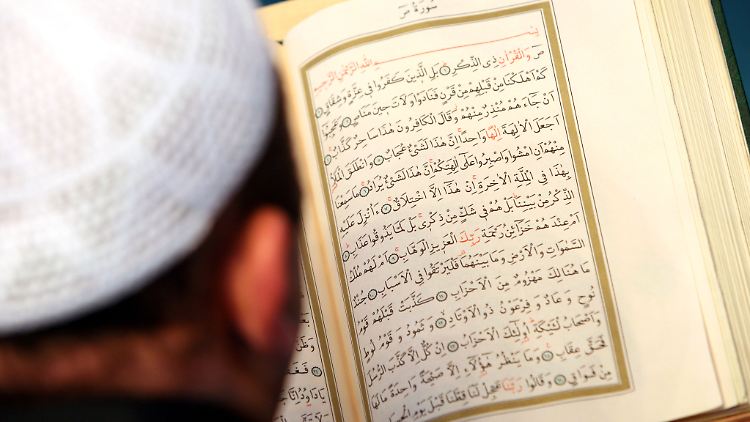 سُورَةُ صٓ
بِسْمِ اللهِ الرَّحْمٰنِ الرَّحِيمِ
صٓ وَالْقُرْاٰنِ ذِي الذِّكْرِ ﴿١﴾ بَلِ الَّذِينَ كَفَرُوا فِي عِزَّةٍ وَشِقَاقٍ ﴿٢﴾
كَمْ اَهْلَكْنَا مِنْ قَبْلِهِمْ مِنْ قَرْنٍ فَنَادَوْا وَلَاتَ حِينَ مَنَاصٍ ﴿٣﴾ وَعَجِبُٓوا
اَنْ جَٓاءَهُمْ مُنْذِرٌ مِنْهُمْ وَقَالَ الْكَافِرُونَ هٰذَا سَاحِرٌ كَذَّابٌ ﴿٤﴾
اَجَعَلَ الْاٰلِهَةَ اِلٰهًا وَاحِدًا اِنَّ هٰذَا لَشَيْءٌ عُجَابٌ ﴿٥﴾ وَانْطَلَقَ الْمَلَاُ
مِنْهُمْ اَنِ امْشُوا وَاصْبِرُوا عَلٰٓى اٰلِهَتِكُمْ اِنَّ هٰذَا لَشَيْءٌ يُرَادُ ﴿٦﴾ مَا سَمِعْنَا
بِهٰذَا فِي الْمِلَّةِ الْاٰخِرَةِ اِنْ هٰذَٓا اِلَّا اخْتِلَاقٌ ﴿٧﴾ ءَاُنْزِلَ عَلَيْهِ
الذِّكْرُ مِنْ بَيْنِنَا بَلْ هُمْ فِي شَكٍّ مِنْ ذِكْرِي بَلْ لَمَّا يَذُوقُوا عَذَابِ ﴿٨﴾
اَمْ عِنْدَهُمْ خَزَٓائِنُ رَحْمَةِ رَبِّكَ الْعَزِيزِ الْوَهَّابِ ﴿٩﴾ اَمْ لَهُمْ مُلْكُ
السَّمٰوَاتِ وَالْاَرْضِ وَمَا بَيْنَهُمَا فَلْيَرْتَقُوا فِي الْاَسْبَابِ ﴿١٠﴾ جُنْدٌ
مَا هُنَالِكَ مَهْزُومٌ مِنَ الْاَحْزَابِ ﴿١١﴾ كَذَّبَتْ قَبْلَهُمْ قَوْمُ
نُوحٍ وَعَادٌ وَفِرْعَوْنُ ذُو الْاَوْتَادِ ﴿١٢﴾ وَثَمُودُ وَقَوْمُ لُوطٍ
وَاَصْحَابُ لْـَٔيْكَةِ اُو۬لٰٓئِكَ الْاَحْزَابُ ﴿١٣﴾ اِنْ كُلٌّ اِلَّا كَذَّبَ الرُّسُلَ
فَحَقَّ عِقَابِ ﴿١٤﴾ وَمَا يَنْظُرُ هٰٓؤُلَٓاءِ اِلَّا صَيْحَةً وَاحِدَةً مَا لَهَا
مِنْ فَوَاقٍ ﴿١٥﴾ وَقَالُوا رَبَّنَا عَجِّلْ لَنَا قِطَّنَا قَبْلَ يَوْمِ الْحِسَابِ